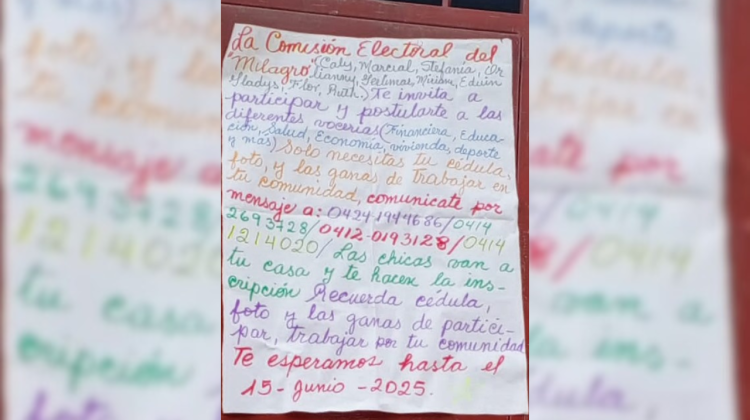 La Comisión Electoral del
"Milagro" (Caly, Marcial, Stefania,
lianny, Yerlimar, Miriam, Eduin
Gladys, Flor, Ruth.) Te invita a
participar y postularte a las
diferentes vocerias (Financiera, Educa-
ción, Salud, Economia, vivienda, deporte
y mas) Solo necesitas tu cédula,
foto, y las ganas de trabajar en
tu comunidad, comunicate por
mensaje a: 0424-1944686/0414
2693728/0412-0193128/0414
1214020/ Las chicas van a
tu casa y te hacen la ins-
cripción Recuerda cédula,
foto y las ganas de partici-
par, trabajar por tu comunidad
Te esperamos hasta el
15-Junio-2025.